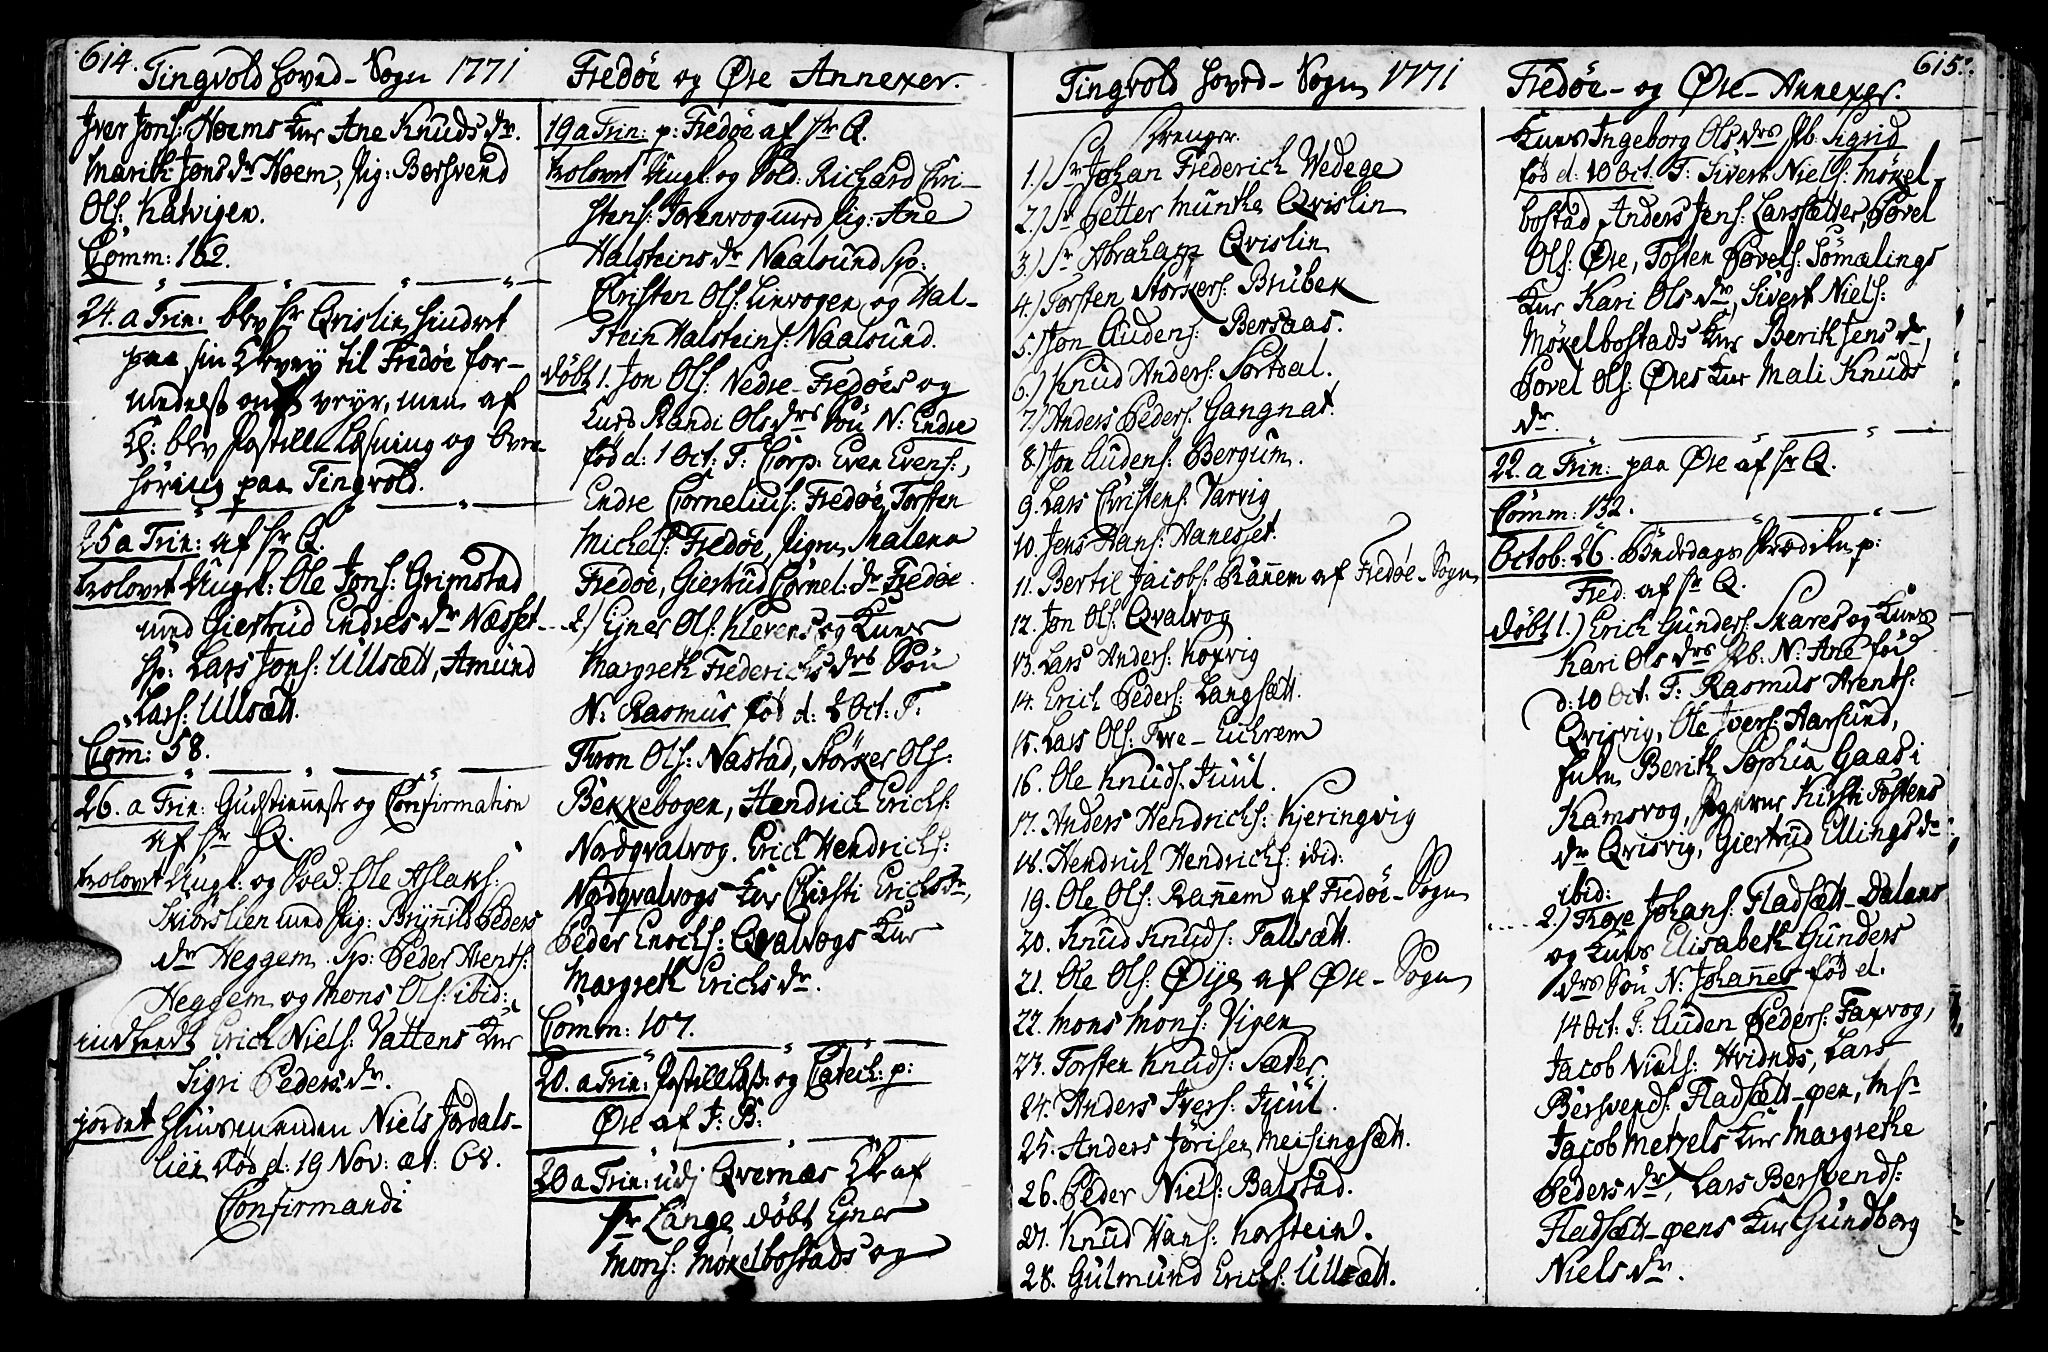 614. Tingvold Hoved-Sogn 1771
Iver Jons: Hoems Kor Ane Knuds dr.
Marith Jons dr Hoem, Pig: Bersvend
Ols: Katvigen.
Comm: 162.
24. a Trin: blev Hr Qvislin hindret
paa sin Reise til Fredøe for-
medelst ondt veyr, men af
Kl: blev Postill Læsning og Over
höring paa Tingvold.
25 a Trin: af Hr Q.
trolovet Ungk: Ole Jons: Grimstad
med Giertrud Endres dr Næsset
Sp: Lars Jons: Ullsætt, Amund
Lars: Ullsætt.
Comm: 58.
26. a Trin: Gudstienneste og Confirmation
af Hr Q.
trolovet Ungk: og Sold: Ole Aslaks:
Skiörslien med Pig: Brÿnnild Peders
dr Heggem. Sp: Peder Arents:
Heggem og Mons Ols: ibid:
indleedt Erich Niels: Vattens Kor
Sigri Peders dr.
jordet Huusmanden Niels Jordals-
lien død d: 19 Nov: æt: 68.
Confirmandi
Fredøe og Øre Annexer.
19 a Trin: p: Fredøe af Hr Q.
trolovet Ungk: og Sold: Richard Chri-
stens: Torenvog med Pig: Ane
Halsteins dr Naalsund Sp:
Christen Ols: Linvogen og Hal-
stein Halsteins: Naalsund.
døbt 1. Jon Ols: Nedre-Fredøes og
Kors Randi Ols drs Søn N: Endre
fød d: 1 Oct: F: Corp: Even Evens:,
Endre Cornelius: Fredøe, Torsten
Michels: Fredøe, Pigen Malena
Fredøe, Giertrud Cornel: dr Fredøe.
2.) Ejner Ols: Klevens og Kors
Margreth Frederichs drs Søn
N: Rasmus fød d: 2 Oct: F:
Tron Ols: Nastad, Störker Ols:
Bekkebogen, Hendrich Erichs:
Nordqvalvog. Erich Hendrichs:
Nordqvalvogs Kor Chirsti Erichs dr,
Peder Enochs: Qvalvogs Kor
Margreth Erichs dr.
Comm: 107.
20. a Trin: Postill Læs: og Catech: p:
Øre af J: B:
20 a Trin: udj Qvernæs K: af
Hr Lange døbt Ejner
Mons: Moxelbostads og
Tingvold Hoved-Sogn 1771
Drenger
1.) Sr Johan Frederich Wedege
2.) Sr Petter Munthe Qvislin
3.) Sr Abraham Qvislin
4.) Torsten Störkers: Brubek
5.) Jon Audens: Bersaas.
6.) Knud Anders: Sortdal.
7.) Anders Peders: Gangnat.
8.) Jon Audens: Bergum.
9. Lars Christens: Tarvig
10. Jens Hans: Hanesset.
11. Bertil Jacobs: Ranem af Fredøe-Sogn
12. Jon Ols: Qvalvog
13. Lars Anders: Koxvig
14. Erich Peders: Langsætt.
15. Lars Ols: Fore-Eichrem
16. Ole Knuds: Juul.
17. Anders Hendrichs: Kjeringvig
18. Hendrich Hendrichs: ibid:
19. Ole Ols: Ranem af Fredøe-Sogn
20. Knud Knuds: Tallsætt.
21. Ole Ols: Øye af Øre-Sogn
22. Mons Mons: Vigen
23. Torsten Knuds: Sæter
24. Anders Ivers: Juul.
25. Anders Jörgen Meisingsætt.
26. Peder Niels: Balstad.
27. Knud Hans: Korstein.
28. Gulmund Erichs: Ullsætt.
615.
Fredøe- og Øre-Annexer.
Kors Ingeborg Ols drs Pb. Sigrid
fød d: 10 Oct. F: Sivert Niels: Moxel-
bostad, Anders Jens: Larssætter, Povel
Ols: Øre, Tosten Povels: Sömælings
Kor Kari Ols dr, Sivert Niels:
Moxelbostads Kor Berith Jens dr,
Povel Ols: Øres Kor Mali Knuds
dr.
22. a Trin: paa Øre af Hr Q.
Comm: 132.
Octob: 26. Bönedags Prædiken p:
Fred: af Hr Q.
døbt 1.) Erich Gunders: Skares og Kors
Kari Ols drs Pb. N: Ane fød
d: 10 Oct: F: Rasmus Arents:
Qvisvig, Ole Ivers: Aarsund,
Enken Berith Sophia Gaas i
Kamsvog, Pigerne Kirsti Tostens
dr Qvisvig, Giertrud Ellings dr
ibid:
2.) Tore Johans: Fladsætt-Dalens
og Kors Elisabeth Gunders
drs Søn N: Johannes fød d.
14 Oct: F: Auden Peders: Faxvog,
Jacob Niels: Hvidnes, Lars
Bersvends: Fladsætt-øen, Msr
Jacob Metzels Kor Margrethe
Peders dr, Lars Bersvends:
Fladsætt-øens Kor Gundborg
Niels dr.